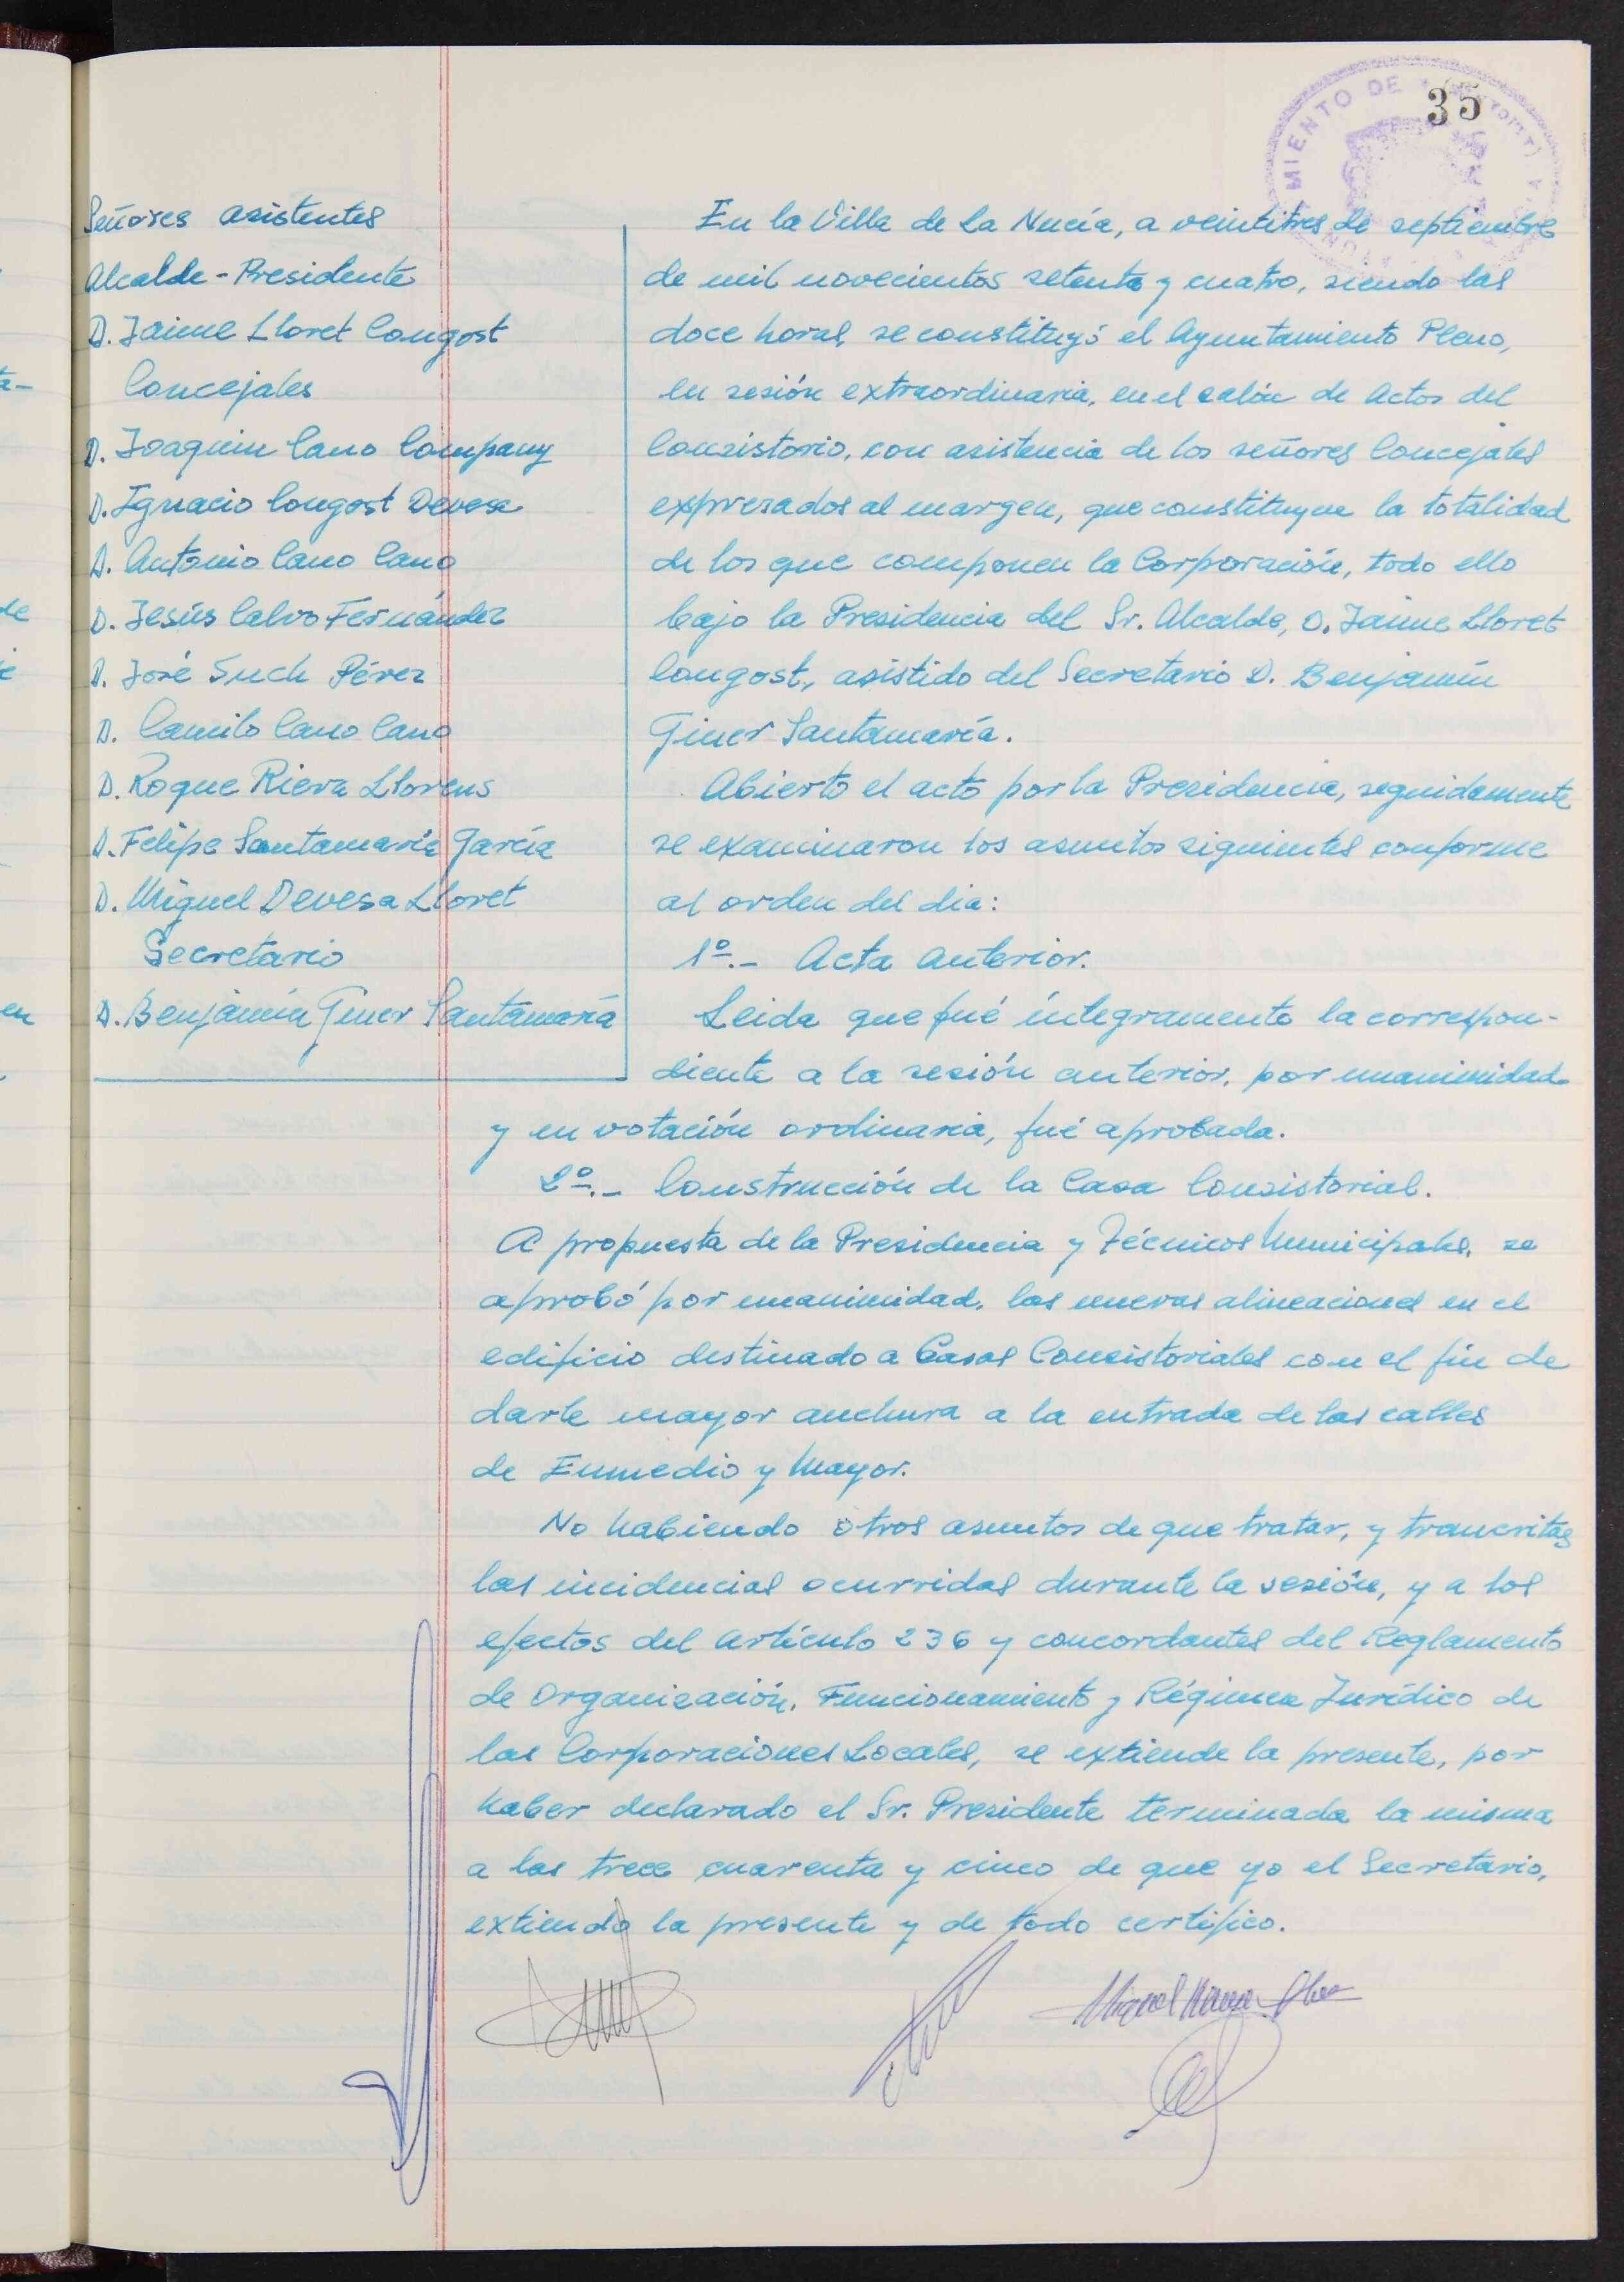 35
Señores asistentes
Alcalde-Presidente
D. Jaime Lloret Congost
Concejales
D. Joaquin Cano Company
D. Ignacio Congost Devesa
D. Antonio Cano Cano
D. Jesús Calvo Fernández
D. José Such Pérez
D. Camilo Cano Cano
D. Roque Riera Llorens
D. Felipe Santamaría García
D. Miguel Devesa Lloret
Secretario
D. Benjamín Giner Santamaría
En la Villa de La Nucía, a veintitres de septiembre
de mil novecientos setenta y cuatro, siendo las
doce horas, se constituyó el Ayuntamiento Pleno,
en sesión extraordinaria, en el salón de Actos del
Consistorio, con asistencia de los señores Concejales
expresados al margen, que constituyen la totalidad
de los que componen la Corporación, todo ello
bajo la Presidencia del Sr. Alcalde, D. Jaime Lloret
Congost, asistido del Secretario D. Benjamín
Giner Santamaría.
Abierto el acto por la Presidencia, seguidamente
se examinaron los asuntos siguientes conforme
al orden del dia:
1º.- Acta anterior.
Leida que fué íntegramente la correspon-
diente a la sesión anterior, por unanimidad
y en votación ordinaria, fué aprobada.
2º.- Construcción de la Casa Consistorial.
A propuesta de la Presidencia y Técnicos Municipales, se
aprobó por unanimidad, las nuevas alineaciones en el
edificio destinado a Casas Consistoriales con el fin de
darle mayor anchura a la entrada de las calles
de Enmedio y Mayor.
No habiendo otros asuntos de que tratar, y trancritas
las incidencias ocurridas durante la sesión, y a los
efectos del artículo 236 y concordantes del Reglamento
de Organización, Funcionamiento y Régimen Jurídico de
las Corporaciones Locales, se extiende la presente, por
haber declarado el Sr. Presidente terminada la misma
a las trece cuarenta y cinco de que yo el Secretario,
extiendo la presente y de todo certifico.